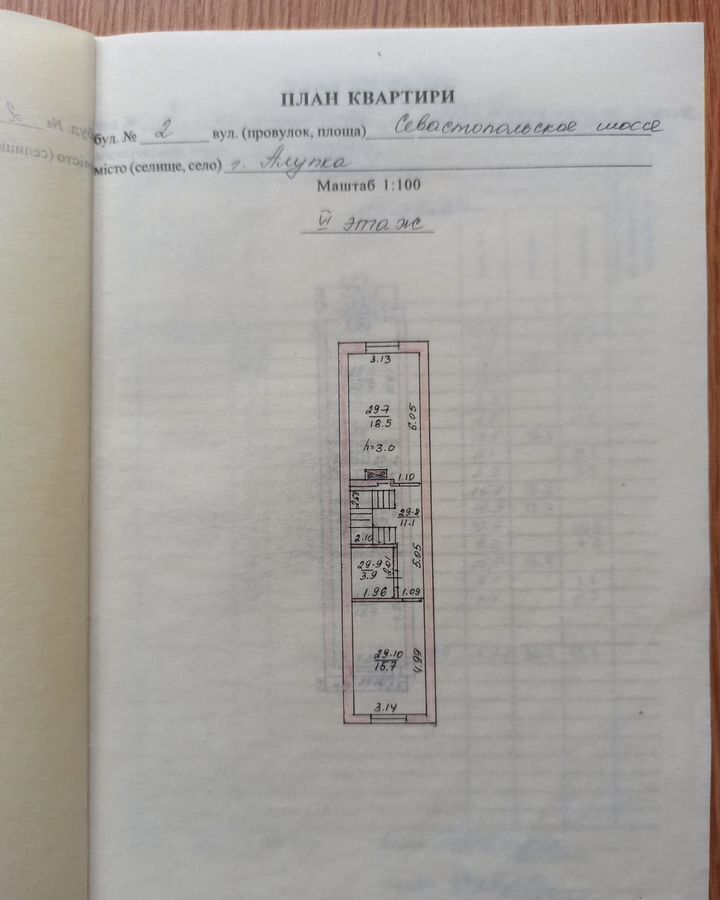 ПЛАН КВАРТИРИ
буд. № 2 вул. (провулок, площа) Севастопольское шоссе
місто (селище, село) г. Алупка
Маштаб 1:100
VI этаж
3.13
29-7
18.5
6.05
h=3.0
1.10
29-8
11.1
2.10
5.05
29-9
3.9
2.01
1.96
1.09
29-10
15.7
4.99
3.14